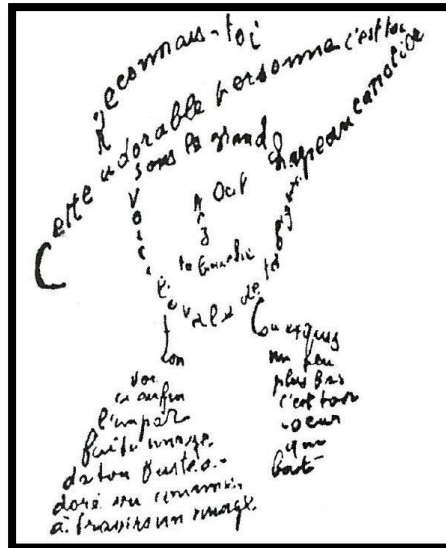 Reconnais-toi
Cette adorable personne c'est toi
Sous le grand chapeau canotier
Oeil
Nez
La bouche
Voici l'ovale de ta figure
Ton
Cou exquis
voi
ci enfin
l'impar
faite image
de ton buste a-
doré vu comme
à travers un nuage
un peu
plus bas
c'est ton
coeur
qui
bat